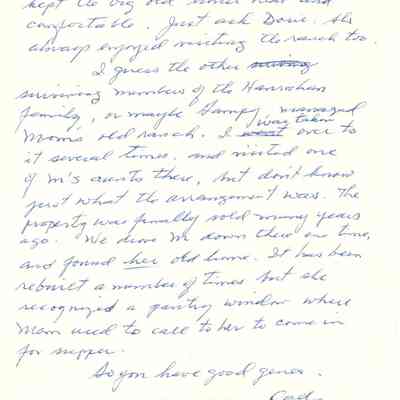 kept the big old house neat and
comfortable. Just ask Dave. He
always enjoyed visiting the ranch too.
I guess the other
surviving members of the Hanrahan
family, or maybe Grampy, managed
Mom's old ranch. I was taken over to
it several times, and visited one
of M's aunts there, but don't know
just what the arrangement was. The
property was finally sold many years
ago. We drove M down there one time,
and found her old home. It has been
rebuilt a number of times but she
recognized a pantry window where
Mom used to call to her to come in
for supper.
So you have good genes.